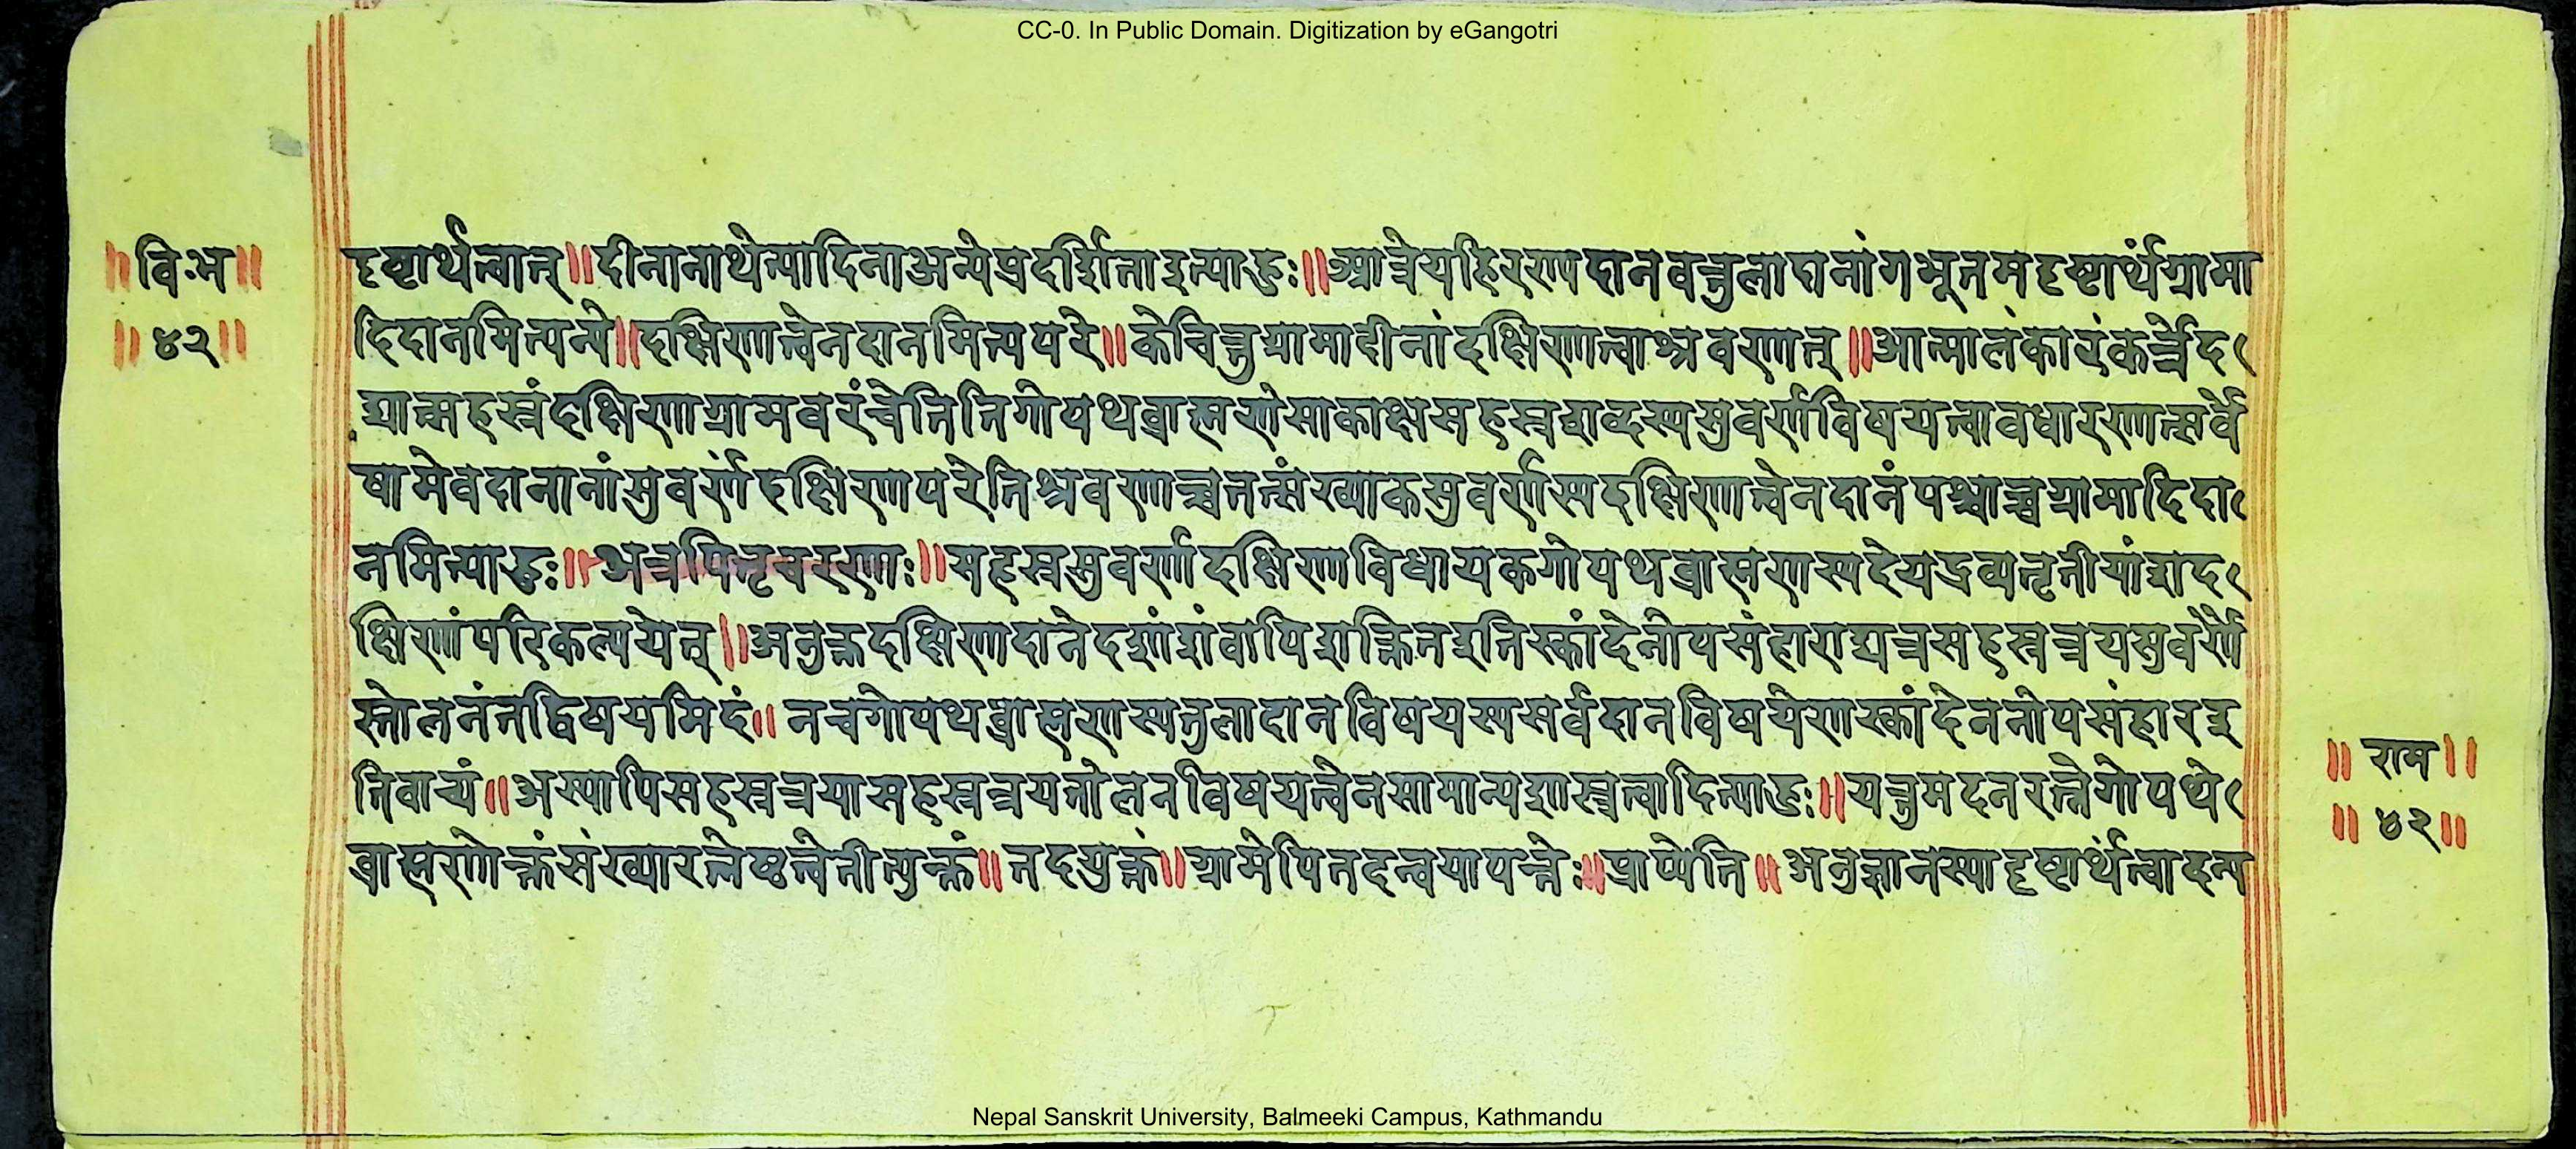 CC-0. In Public Domain. Digitization by eGangotri
॥विःभ॥
॥४२॥
दृष्टार्थत्वात्॥दीनानाथेत्यादिनाअन्येप्रदर्शिताइत्याहुः॥आत्रेयहिरण्यदानवत्तुलादानांगभूतमदृष्टार्थंग्रामा
दिदानमित्यन्ये॥दक्षिणात्वेनदानमित्यपरे॥केचित्तुग्रामादीनांदक्षिणात्वाश्रवणात्॥आत्मालंकारंकर्त्रेद
द्यात्सहस्रंदक्षिणाग्रामवरंचेतितिगोपथब्राह्मणेसाकाक्षसहस्रशब्दस्यसुवर्णविषयत्वावधारणात्सर्वे
षामेवदानानांसुवर्णंदक्षिणापरेतिश्रवणाच्चतत्संख्याकसुवर्णस्यदक्षिणात्वेनदानंपश्चाच्चग्रामादिदा
नमित्याहुः॥अत्रपितृचरणाः॥सहस्रसुवर्णदक्षिणाविधायकगोपथब्राह्मणस्यदेयद्रव्यतृतीयांशद
क्षिणांपरिकल्पयेत्॥अनुक्तदक्षिणादानेदशांशंवापिशक्तितइतिस्कांदेनोपसंहाराद्यत्रसहस्रत्रयसुवर्णै
स्तोलनंतद्विषयमिदं॥नचगोपथब्राह्मणस्यतुलादानविषयस्यसर्वदानविषयेणस्कांदेननोपसंहारइ
तिवाच्यं॥अस्यापिसहस्रत्रयासहस्रत्रयतोलनविषयत्वेनसामान्यशास्त्रत्वादित्याहुः॥यत्तुमदनरत्नेगोपथे
ब्राह्मणोक्तंसंख्यारत्नेष्ठत्वेतीत्युक्तं॥तदयुक्तं॥ग्रामेपितदन्वयापत्तेः॥प्राप्येति॥अनुज्ञानस्यादृष्टार्थंत्वादन्य
॥राम॥
॥४२॥
Nepal Sanskrit University, Balmeeki Campus, Kathmandu